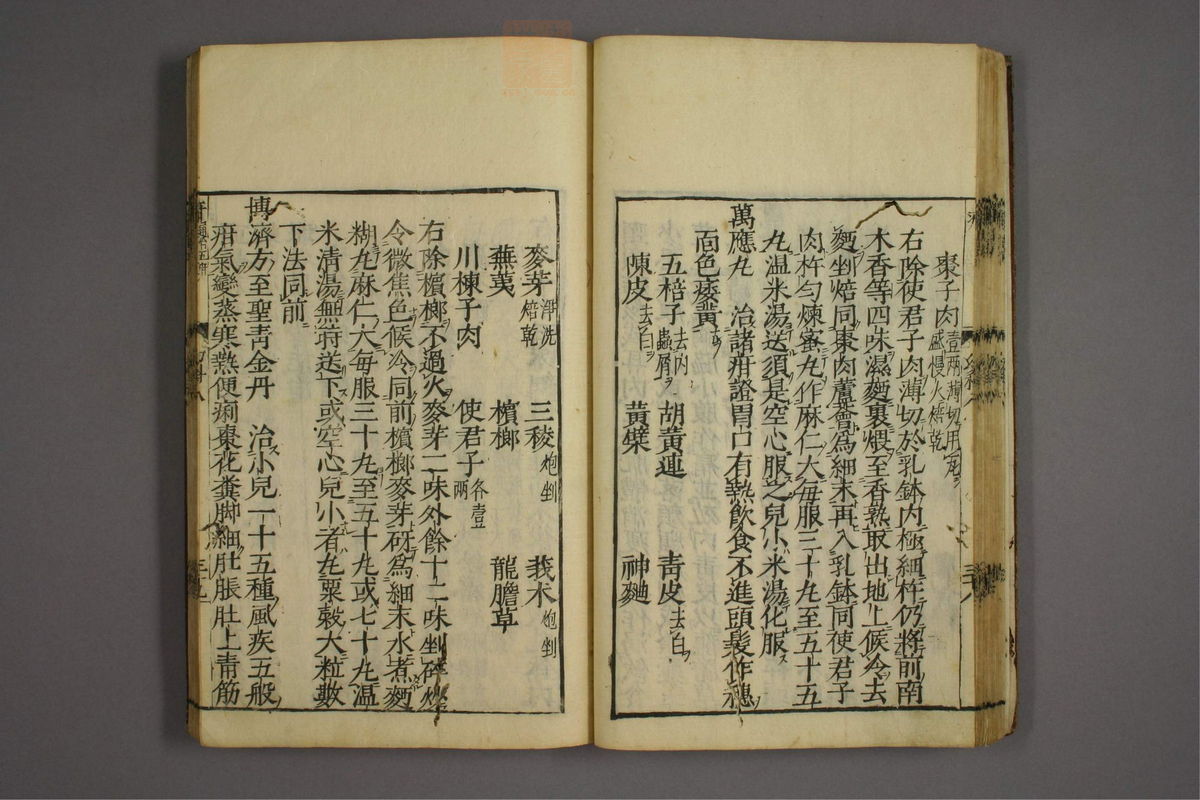 棗子肉 壹兩薄切用瓦
盛慢火焙乾
右除使君子肉薄切於乳鉢内極細杵仍將前南
木香等四味濕麪裹煨至香熟取出地上候冷去
麪剉焙同棗肉蘆薈為細末再入乳鉢同使君子
肉杵勻煉蜜丸作麻仁大每服三十丸至五十五
丸温米湯送須是空心服之兒小米湯化服
萬應丸 治諸疳證胃口有熱飲食不進頭髮作穗
面色痿黃
五棓子 去内蟲屑 胡黃連 青皮 去白
陳皮 去白 黃檗 神麯
麥芽 淨洗焙乾 三稜 炮剉 莪朮 炮剉
蕪荑 檳榔 龍膽草
川楝子肉 使君子 各壹兩
右除檳榔不過火麥芽二味外餘十二味剉碎炒
令微焦色候冷同前檳榔麥芽研為細末水煮麪
糊丸麻仁大每服三十丸至五十丸或七十丸温
米清湯無時送下或空心兒小者丸粟穀大粒數
下法同前
博濟方至聖青金丹 治小兒一十五種風疾五般
疳氣變蒸寒熱便痢棗花糞脚細肚脹肚上青筋